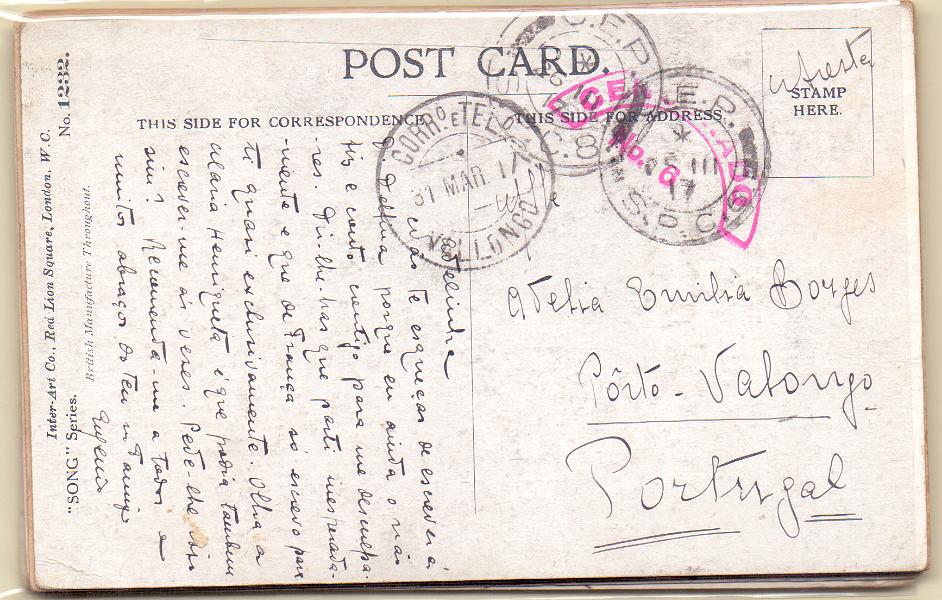 POST CARD.
THIS SIDE FOR CORRESPONDENCE.
THIS SIDE FOR ADDRESS.
STAMP
HERE.
No. 1232.
Inter-Art Co., Red Lion Square, London, W.C.
British Manufacture Throughout.
"SONG" Series.
C.E.P.
S.P.C. 8
C.E.P.
III
17
S.P.C.
No. 8
CORRO. E TELO.
31 MAR. 17
VALLONGO
Adelia Emilia Borges
Pôrto - Valongo -
Portugal
te esqueças de escrever á
Delfina porque eu ainda o não
fiz e conto contigo para me desculpa-
res. Di-lhe has que parti inesperada-
mente e que de França só escrevo para
ti quasi exclusivamente. Olha a
Maria Henriqueta é que podia tambem
escrever-me ás vezes. Pede-lhe
sim? Recomenda-me a todos e
muitos abraços do teu m.to amigo
Eugenio